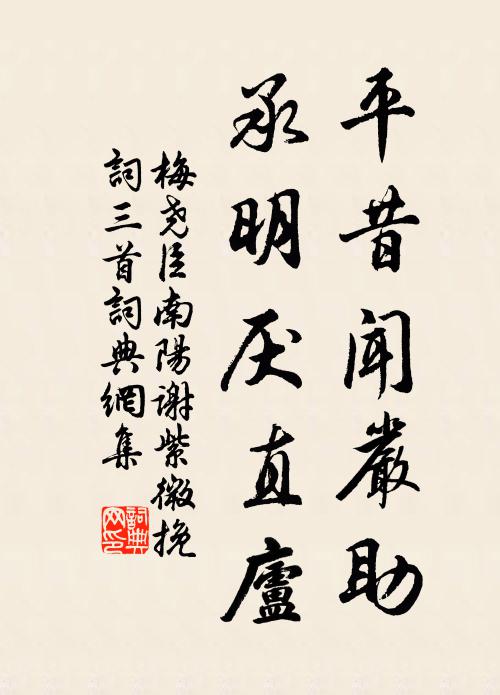 平昔聞嚴助
承明厌直廬
梅尧臣南陽谢紫微挽
詞三首詞典網集
詞典网印